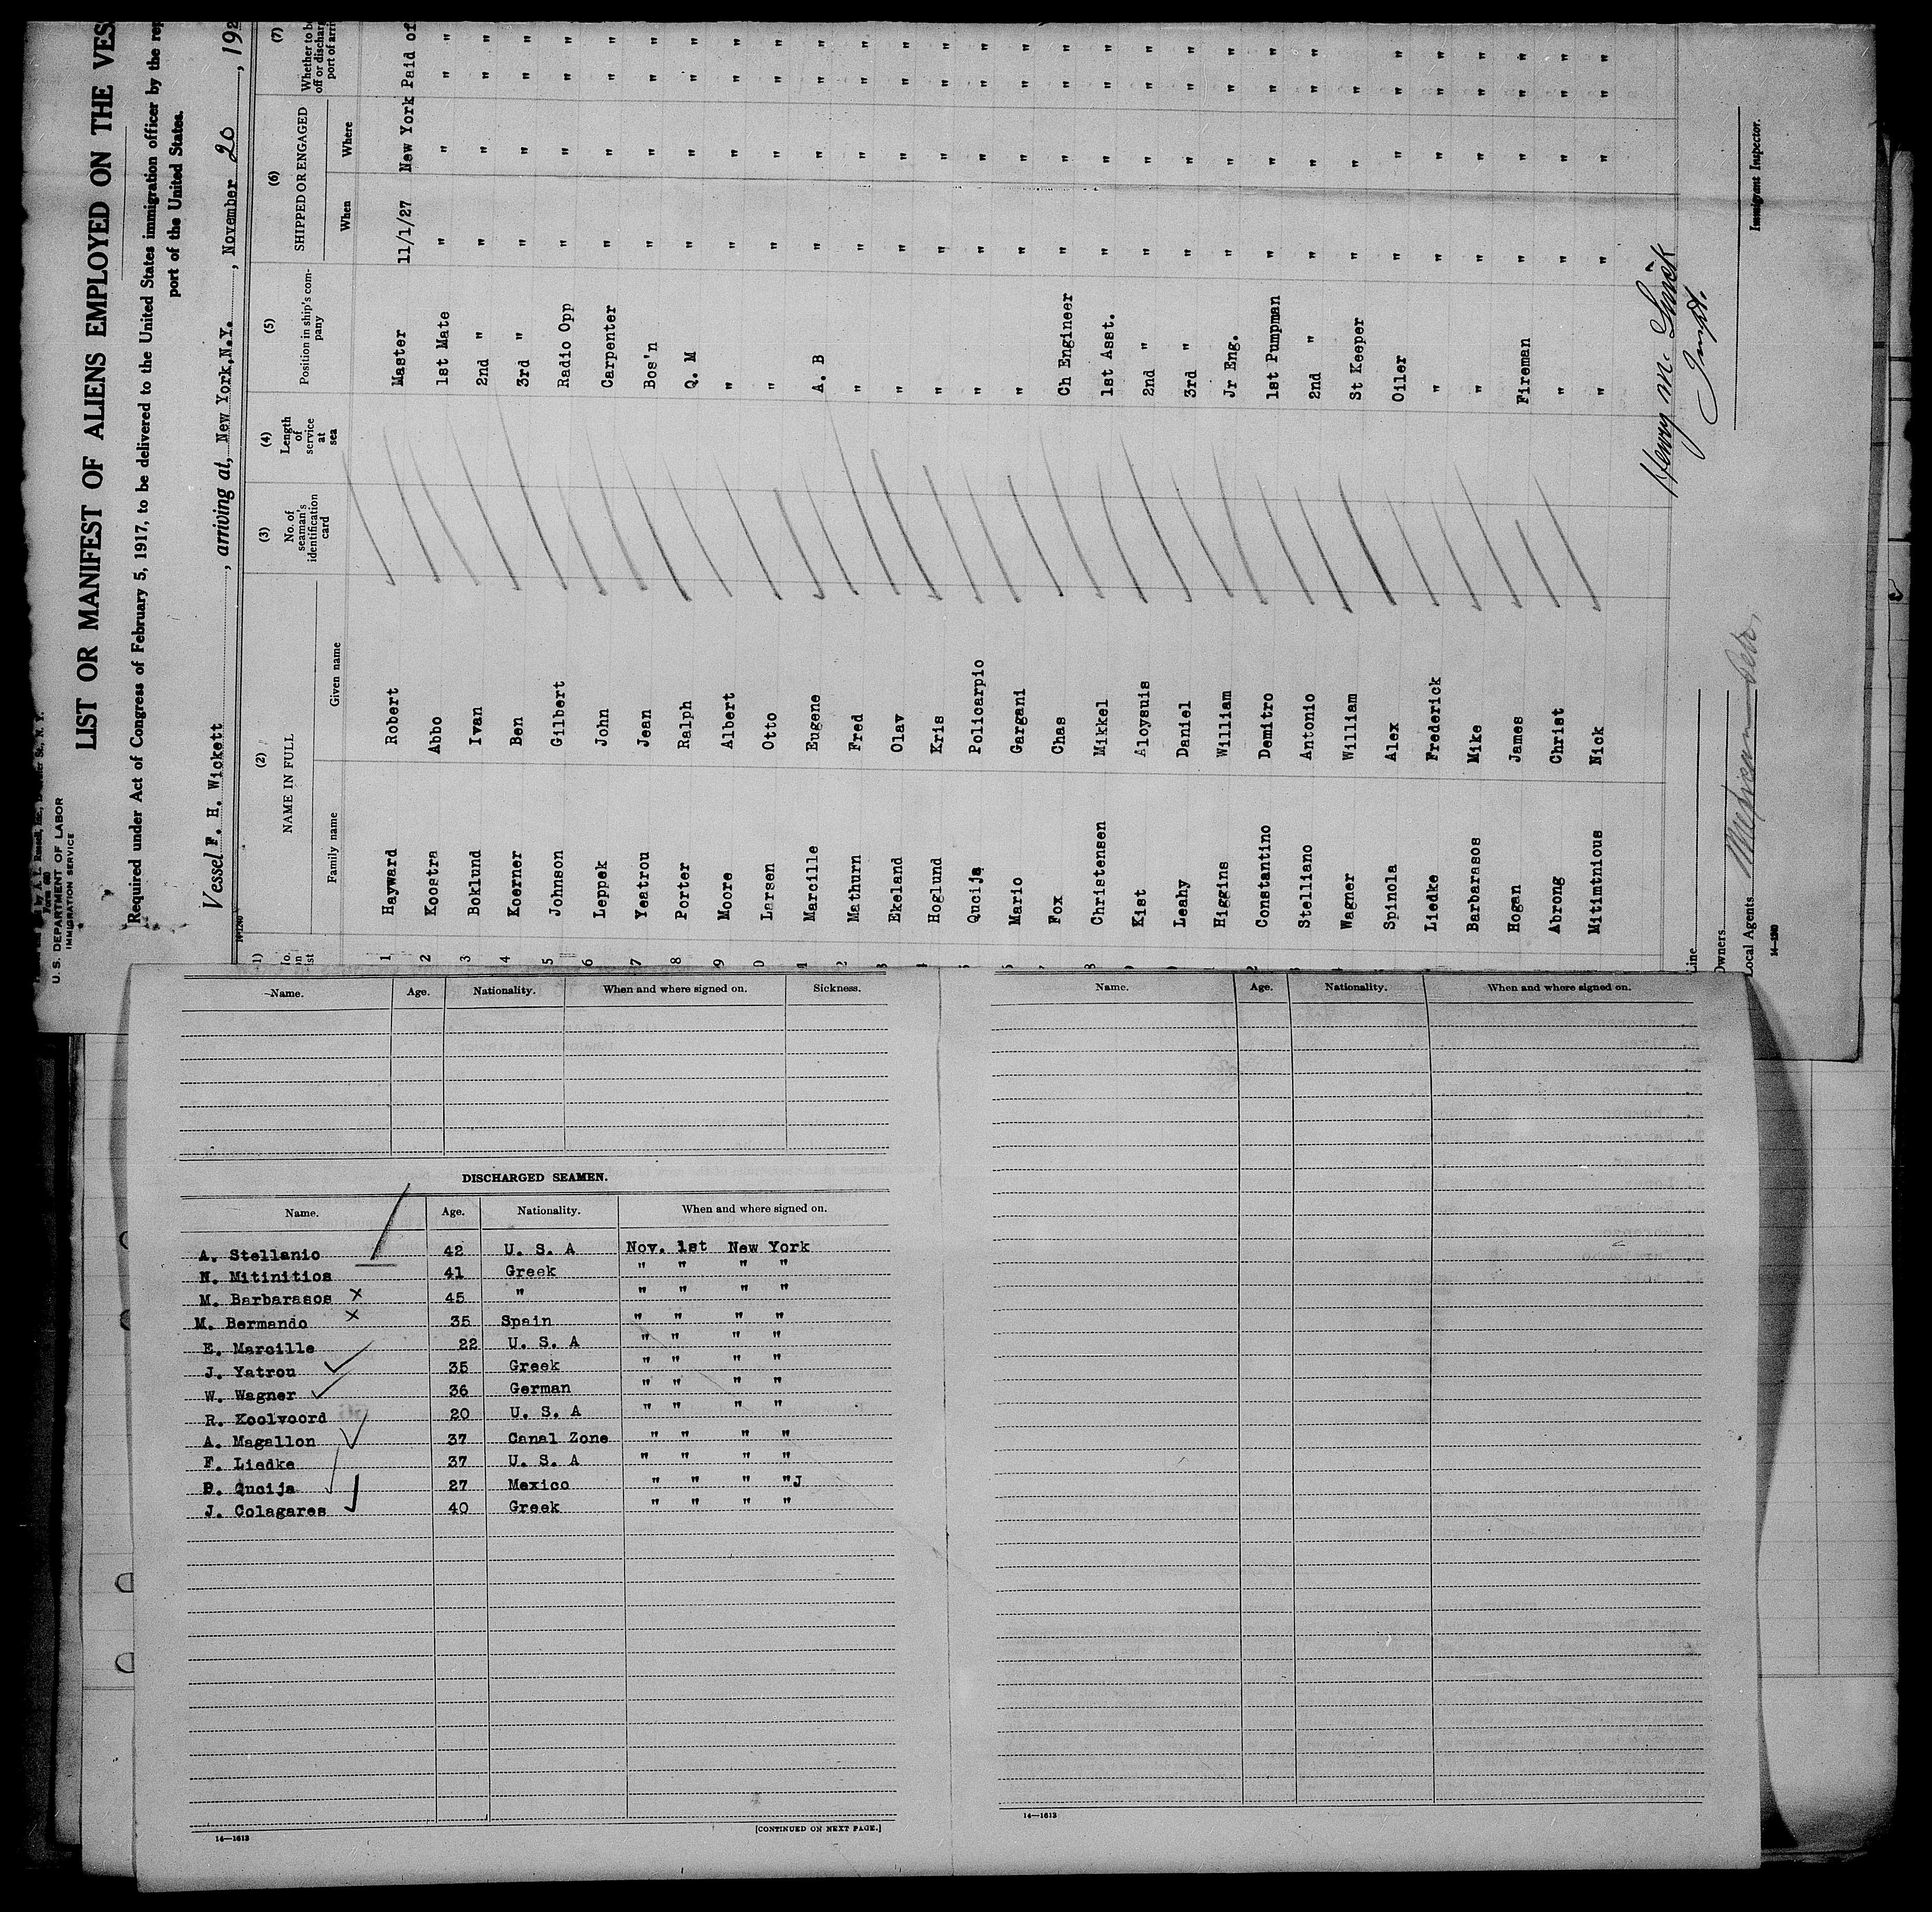 U.S. DEPARTMENT OF LABOR
IMMIGRATION SERVICE
LIST OR MANIFEST OF ALIENS EMPLOYED ON THE VES
Required under Act of Congress of February 5, 1917, to be delivered to the United States immigration officer by the rep
port of the United States.
Vessel F. H. Wickett, arriving at, New York, N.Y., November 20, 192
(2) (3) (4) (5) (6) (7)
NAME IN FULL No. of seaman's identification card Length of service at sea Position in ship's company SHIPPED OR ENGAGED Whether to b off or dischar port of arri
Family name Given name When Where
1 Hayward Robert Master 11/1/27 New York Paid of
2 Koostra Abbo 1st Mate " " " "
3 Boklund Ivan 2nd " " " " "
4 Koerner Ben 3rd " " " " "
5 Johnson Gilbert Radio Opp " " " "
6 Leppek John Carpenter " " " "
7 Yeatrou Jean Bos'n " " " "
8 Porter Ralph Q. M " " " "
9 Moore Albert " " " " "
0 Larsen Otto " " " " "
1 Marcille Eugene A. B " " " "
2 Mathurn Fred " " " " "
3 Ekeland Olav " " " " "
Hoglund Kris " " " " "
Qucija Policarpio " " " " "
Mario Gargani " " " " "
Fox Chas Ch Engineer " " " "
8 Christensen Mikkel 1st Asst. " " " "
Kist Aloysuis 2nd " " " " "
Leahy Daniel 3rd " " " " "
Higgins William Jr Eng. " " " "
Constantino Demitro 1st Pumpman " " " "
Stelliano Antonio 2nd " " " " "
Wagner William St Keeper " " "
Spinola Alex Oiler " " " "
Liedke Frederick " " " " "
Barbarasos Mike " " " " "
Hogan James Fireman " " " "
Abrong Christ " " " " "
Mitimtnious Nick " " " " "
Henry M.
Inspt.
Immigrant Inspector.
Line
Owners
Local Agents Mexican
14—1240
Name. Age. Nationality. When and where signed on. Sickness.
DISCHARGED SEAMEN.
Name. Age. Nationality. When and where signed on.
A. Stellanio 42 U. S. A Nov. 1st New York
N. Mitinitios 41 Greek " " " "
M. Barbarasos x 45 " " " " "
M. Bermando x 35 Spain " " " "
E. Marcille 22 U. S. A " " " "
J. Yatrou 35 Greek " " " "
W. Wagner 36 German " " " "
R. Koolvoord 20 U. S. A " " " "
A. Magallon 37 Canal Zone " " " "
F. Liedke 37 U. S. A " " " "
P. Qucija 27 Mexico " " " "J
J. Colagares 40 Greek " " " "
14—1613
[CONTINUED ON NEXT PAGE.]
Name. Age. Nationality. When and where signed on.
14—1613